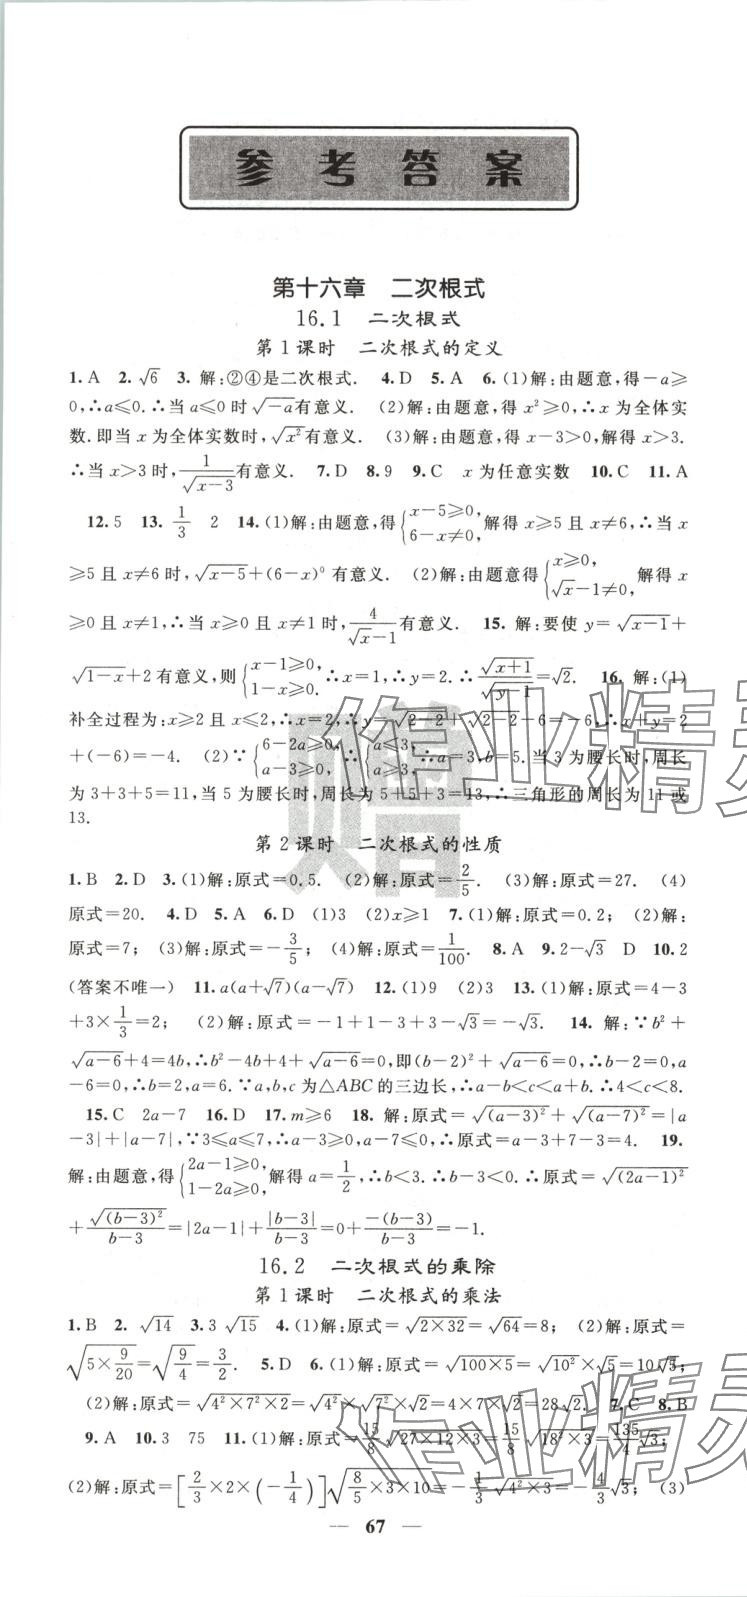 参考答案
第十六章 二次根式
16.1 二次根式
第1课时 二次根式的定义
1. A 2. √6 3. 解:②④是二次根式. 4. D 5. A 6. (1)解:由题意,得-a≥
0,∴a≤0.∴当 a≤0 时√-a有意义. (2)解:由题意,得 x²≥0,∴x 为全体实
数.即当 x 为全体实数时,√x²有意义. (3)解:由题意,得 x-3>0,解得 x>3.
∴当 x>3 时,1/√x-3有意义. 7. D 8. 9 9. C x 为任意实数 10. C 11. A
12. 5 13. 1/3 2 14. (1)解:由题意,得{x-5≥0, 6-x≠0, 解得 x≥5 且 x≠6,∴当 x
≥5 且 x≠6 时,√x-5+(6-x)⁰ 有意义. (2)解:由题意得{x≥0, √x-1≠0, 解得 x
≥0 且 x≠1,∴当 x≥0 且 x≠1 时,4/√x-1有意义. 15. 解:要使 y=√x-1+
√1-x+2 有意义,则{x-1≥0, 1-x≥0. ∴x=1,∴y=2.∴√x+1/√y-1=√2. 16. 解:(1)
补全过程为:x≥2 且 x≤2,∴x=2,∴y=√2-2+√2-2-6=-6,∴x+y=2
+(-6)=-4. (2)∵{6-2a≥0, a-3≥0, ∴{a≤3, a≥3, ∴a=3,b=5.当 3 为腰长时,周长
为 3+3+5=11,当 5 为腰长时,周长为 5+5+3=13,∴三角形的周长为 11 或
13.
第2课时 二次根式的性质
1. B 2. D 3. (1)解:原式=0.5. (2)解:原式=2/5. (3)解:原式=27. (4)
原式=20. 4. D 5. A 6. D (1)3 (2)x≥1 7. (1)解:原式=0.2; (2)解:
原式=7; (3)解:原式=-3/5; (4)解:原式=1/100. 8. A 9. 2-√3 D 10. 2
(答案不唯一) 11. a(a+√7)(a-√7) 12. (1)9 (2)3 13. (1)解:原式=4-3
+3×1/3=2; (2)解:原式=-1+1-3+3-√3=-√3. 14. 解:∵b²+
√a-6+4=4b,∴b²-4b+4+√a-6=0,即(b-2)²+√a-6=0,∴b-2=0,a
-6=0,∴b=2,a=6.∵a,b,c 为△ABC 的三边长,∴a-b<c<a+b.∴4<c<8.
15. C 2a-7 16. D 17. m≥6 18. 解:原式=√(a-3)²+√(a-7)²=|a
-3|+|a-7|,∵3≤a≤7,∴a-3≥0,a-7≤0,∴原式=a-3+7-3=4. 19.
解:由题意,得{2a-1≥0, 1-2a≥0, 解得 a=1/2,∴b<3.∴b-3<0.∴原式=√(2a-1)²
+√(b-3)²/b-3=|2a-1|+|b-3|/b-3=0+-(b-3)/b-3=-1.
16.2 二次根式的乘除
第1课时 二次根式的乘法
1. B 2. √14 3. 3√15 4. (1)解:原式=√2×32=√64=8; (2)解:原式=
√5×9/20=√9/4=3/2. 5. D 6. (1)解:原式=√100×5=√10²×√5=10√5.
(2)解:原式=√4²×7²×2=√4²×√7²×√2=4×7×√2=28√2. 7. C 8. B
9. A 10. 3 75 11. (1)解:原式=15/8√27×12×3=15/8√18²×3=135/4√3;
(2)解:原式=[2/3×2×(-1/4)]√8/5×3×10=-1/3√4²×3=-4/3√3; (3)
— 67 —
赠
作业精灵
作业精灵